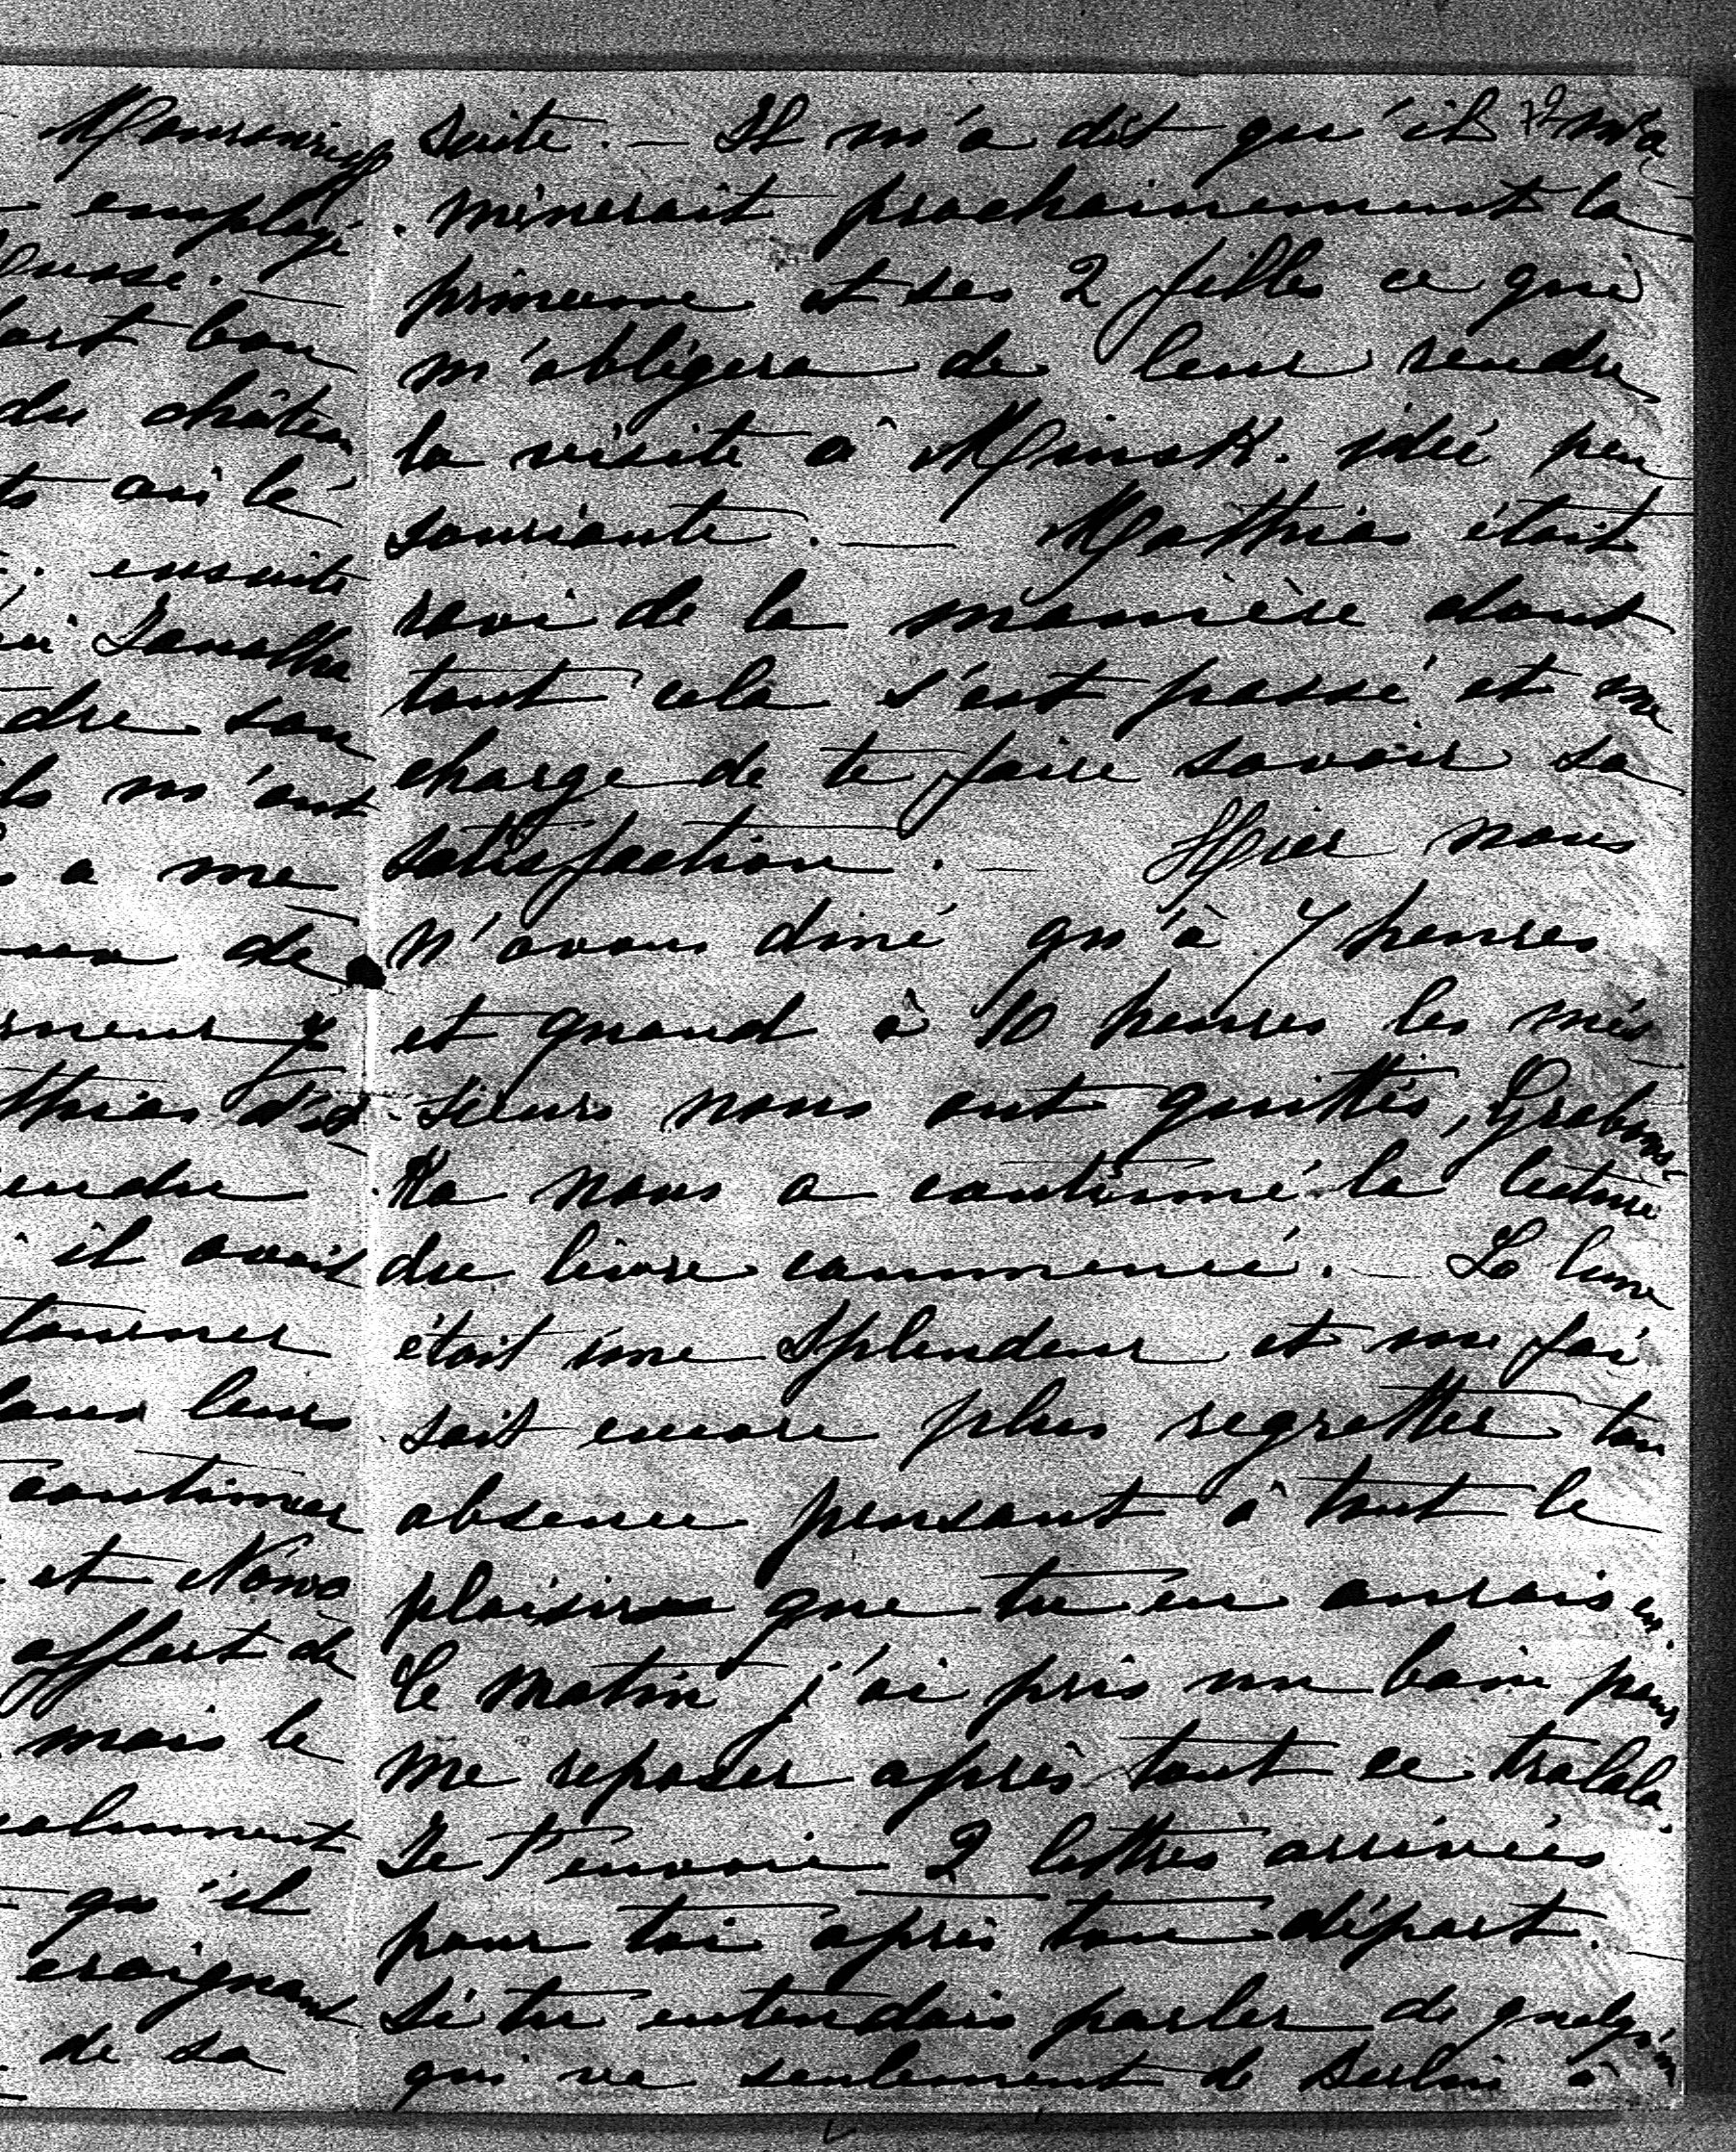 Mouravieff
employé
Russe.
fort bon
du château
où le
ensuite
Janelka
dre son
ils m'ont
a me
de
rneur y
thias
endre
il avait
tourner
dans leurs
continuer
et Nowo
offert de
mais le
alement
qu'il
craignant
de sa
suite. — Il m'a dit qu'il m'a
mènerait prochainement la
princesse et ses 2 filles ce qui
m'obligera de leur rendre
la visite à Minsk. idée peu
souriante. — Mathias était
ravi de la manière dont
tout cela s'est passé et me
charge de te faire savoir sa
satisfaction. — Hier nous
n'avons diné qu'à 7 heures
et quand à 10 heures les més
sieurs nous ont quittés, Grabows-
ka nous a continué la lecture
du livre commencé. — La lune
était une splendeur et me fai
sait encore plus regretter ton
absence pensant à tout le
plaisir que tu en aurais eu.
Le matin j'ai pris un bain pour
me reposer après tout ce tralala.
Je t'envoie 2 lettres arrivées
pour toi après ton départ.
Si tu entendais parler de quelqu'un
qui va seulement de Berlin à